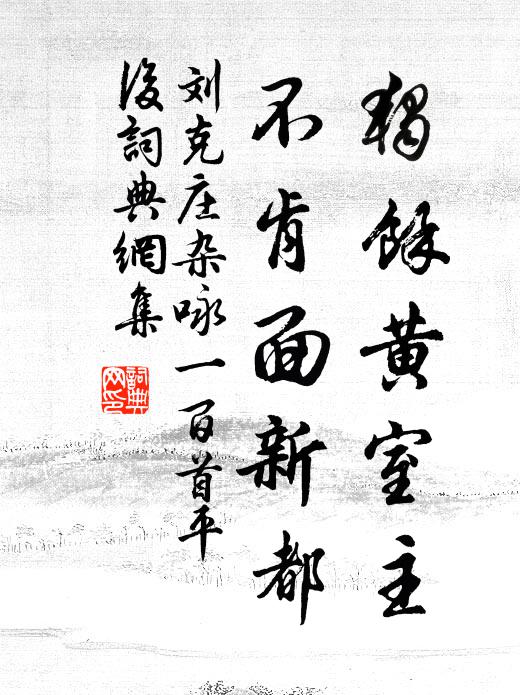 独馀黄室主
不肯面新都
刘克庄杂咏一百首平
后词典網集
詞典
网印